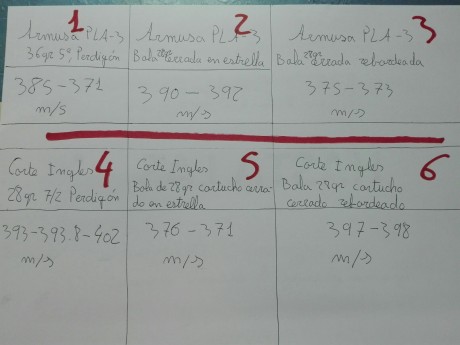 1
Armusa PLA-3
36gr 5ª Perdigón
385-371
m/s
2
Armusa PLA-3
Bala 28gr Cerrada en estrella
390-392
m/s
3
Armusa PLA-3
Bala 28gr Cerrada rebordeada
375-373
m/s
4
Corte Ingles
28gr 7/2 Perdigón
393-393.8-402
m/s
5
Corte Ingles
Bala de 28gr cartucho cerra-
do en estrella
376-371
m/s
6
Corte Ingles
Bala 28gr cartucho
cerrado rebordeado
397-398
m/s